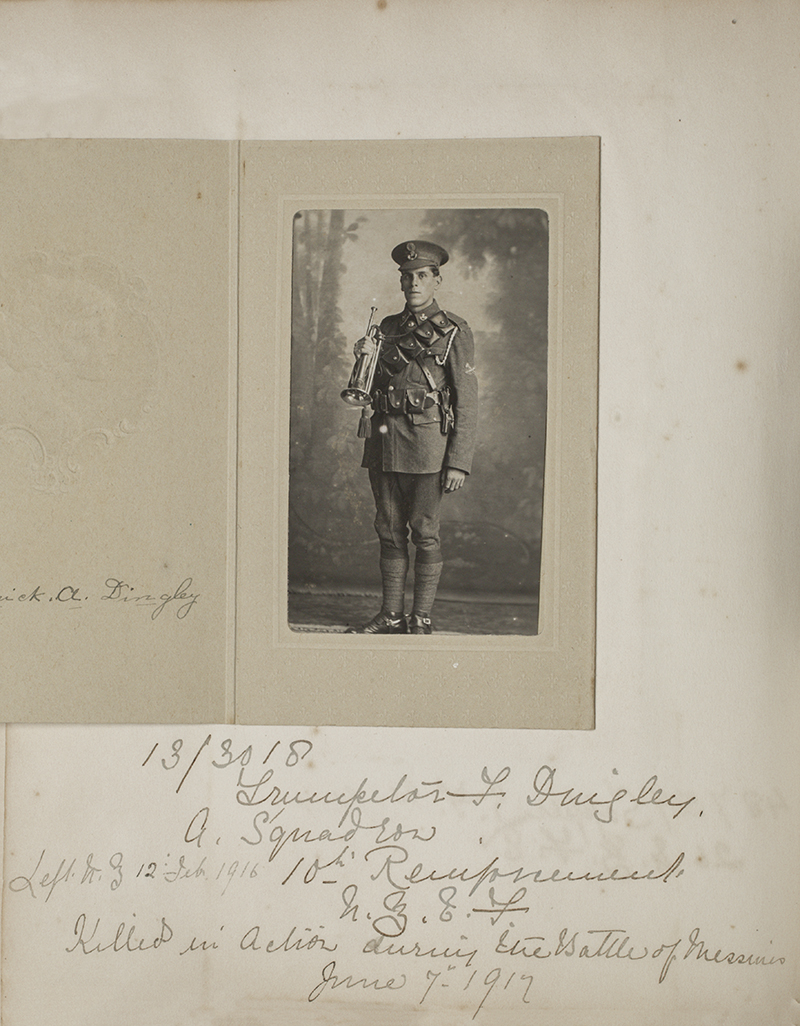 ick. A. Dingley
13/3018
Trumpeter F. Dingley.
A. Squadron.
Left N.Z 12th Feb. 1916 10th Reinforcement
N.Z.E.F
Killed in Action during the Battle of Messines
June 7th 1917